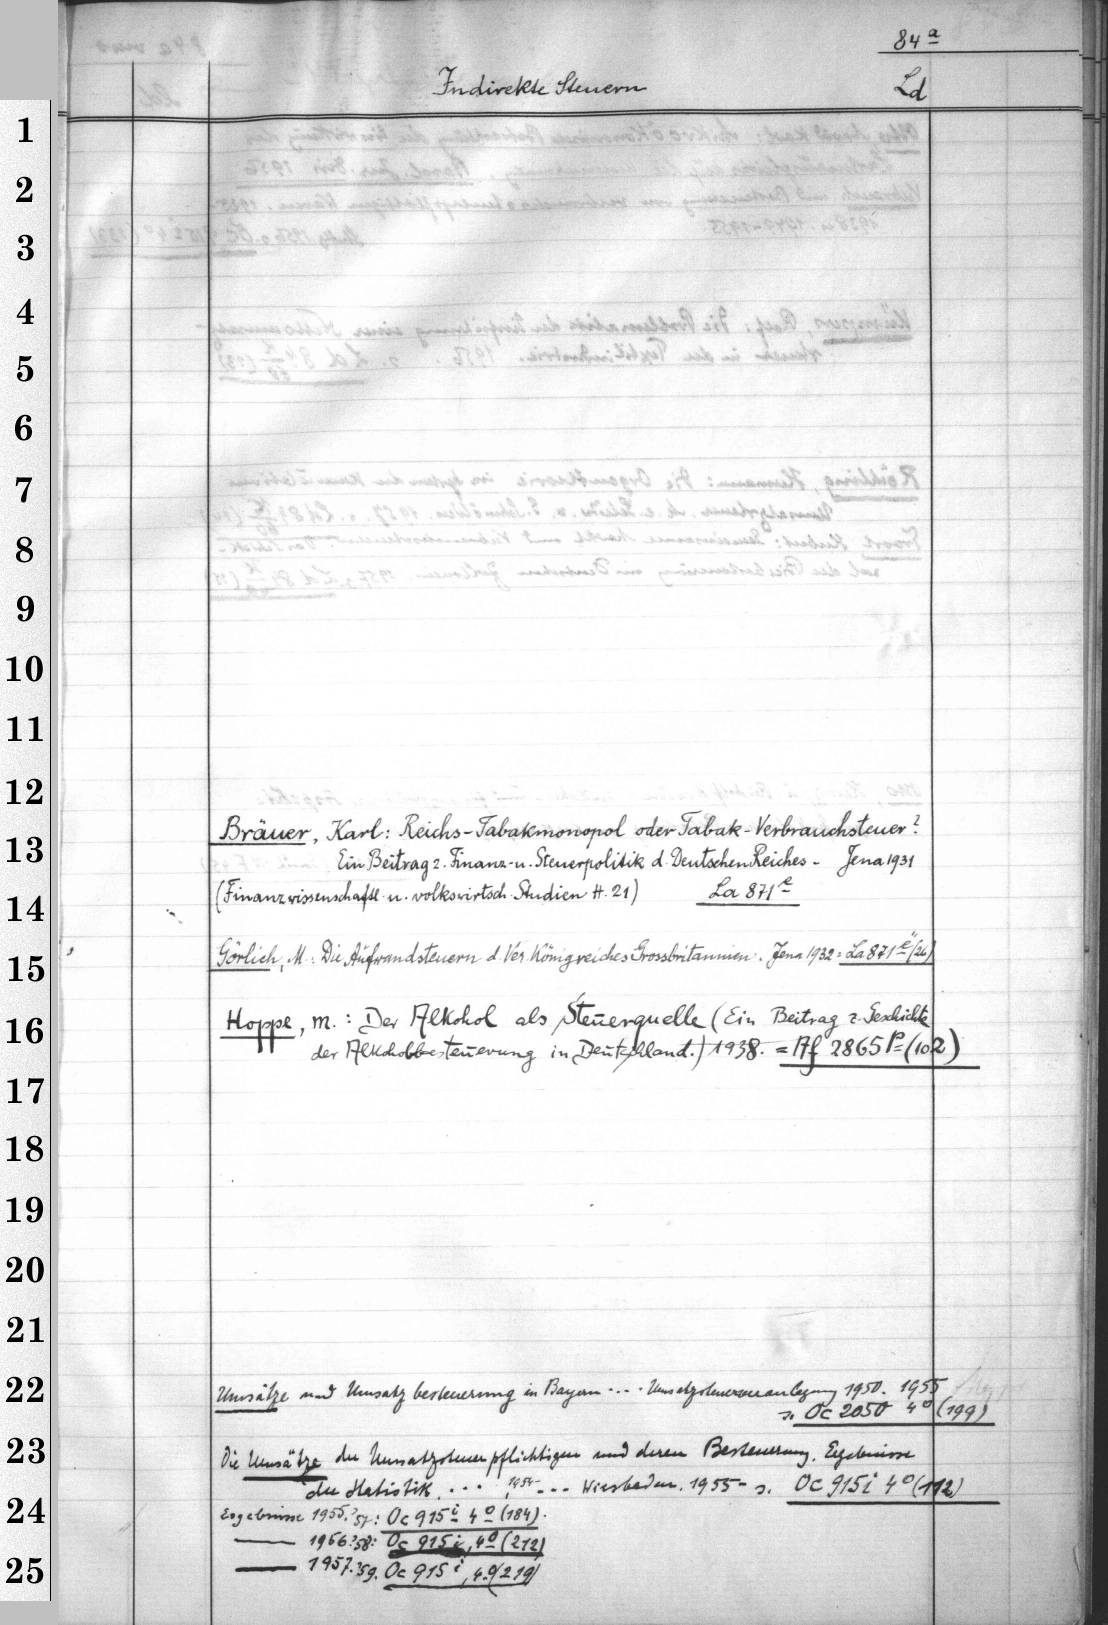 84 a
Indirekte Steuern
Ld
1
2
3
4
5
6
7
8
9
10
11
12
Bräuer, Karl: Reichs-Tabakmonopol oder Tabak-Verbrauchsteuer?
13
Ein Beitrag z. Finanz- u. Steuerpolitik d. Deutschen Reiches - Jena 1931
14
(Finanzwissenschaftl. u. volkswirtsch. Studien H. 21) La 871 e
15
Görlich, M.: Die Aufwandsteuern d. Ver. Königreiches Grossbritannien. Jena 1932 = La 871 e (26)
16
Hoppe, M.: Der Alkohol als Steuerquelle (Ein Beitrag z. Geschichte
der Alkoholbesteuerung in Deutschland.) 1938. = Af 2865 p (102)
17
18
19
20
21
22
Umsätze und Umsatzbesteuerung in Bayern ... Umsatzsteuerveranlagung 1950. 1955
s. Oc 2050 4° (199)
23
Die Umsätze der Umsatzsteuerpflichtigen und deren Besteuerung. Ergebnisse
der Statistik. ... 1954 - ... Wiesbaden. 1955 - s. Oc 915 i 4° (172)
24
Ergebnisse 1955. '57: Oc 915 i 4° (184).
— 1956. '58: Oc 915 i, 4° (212)
25
— 1957. '59. Oc 915 i, 4° (219)